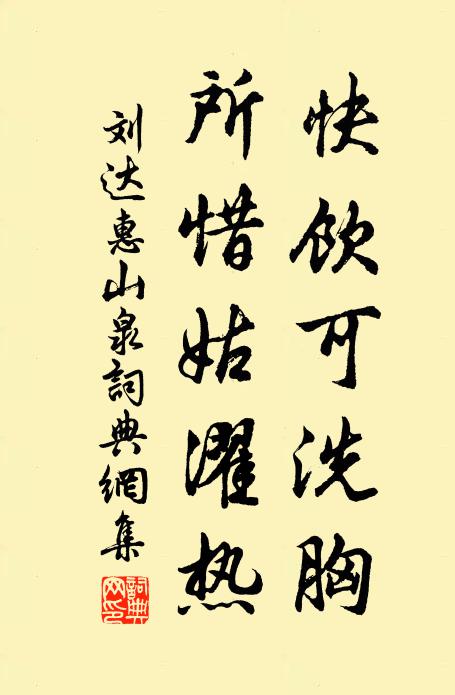 快饮可洗胸
所惜姑濯热
刘达惠山泉詞典網集
詞典网印